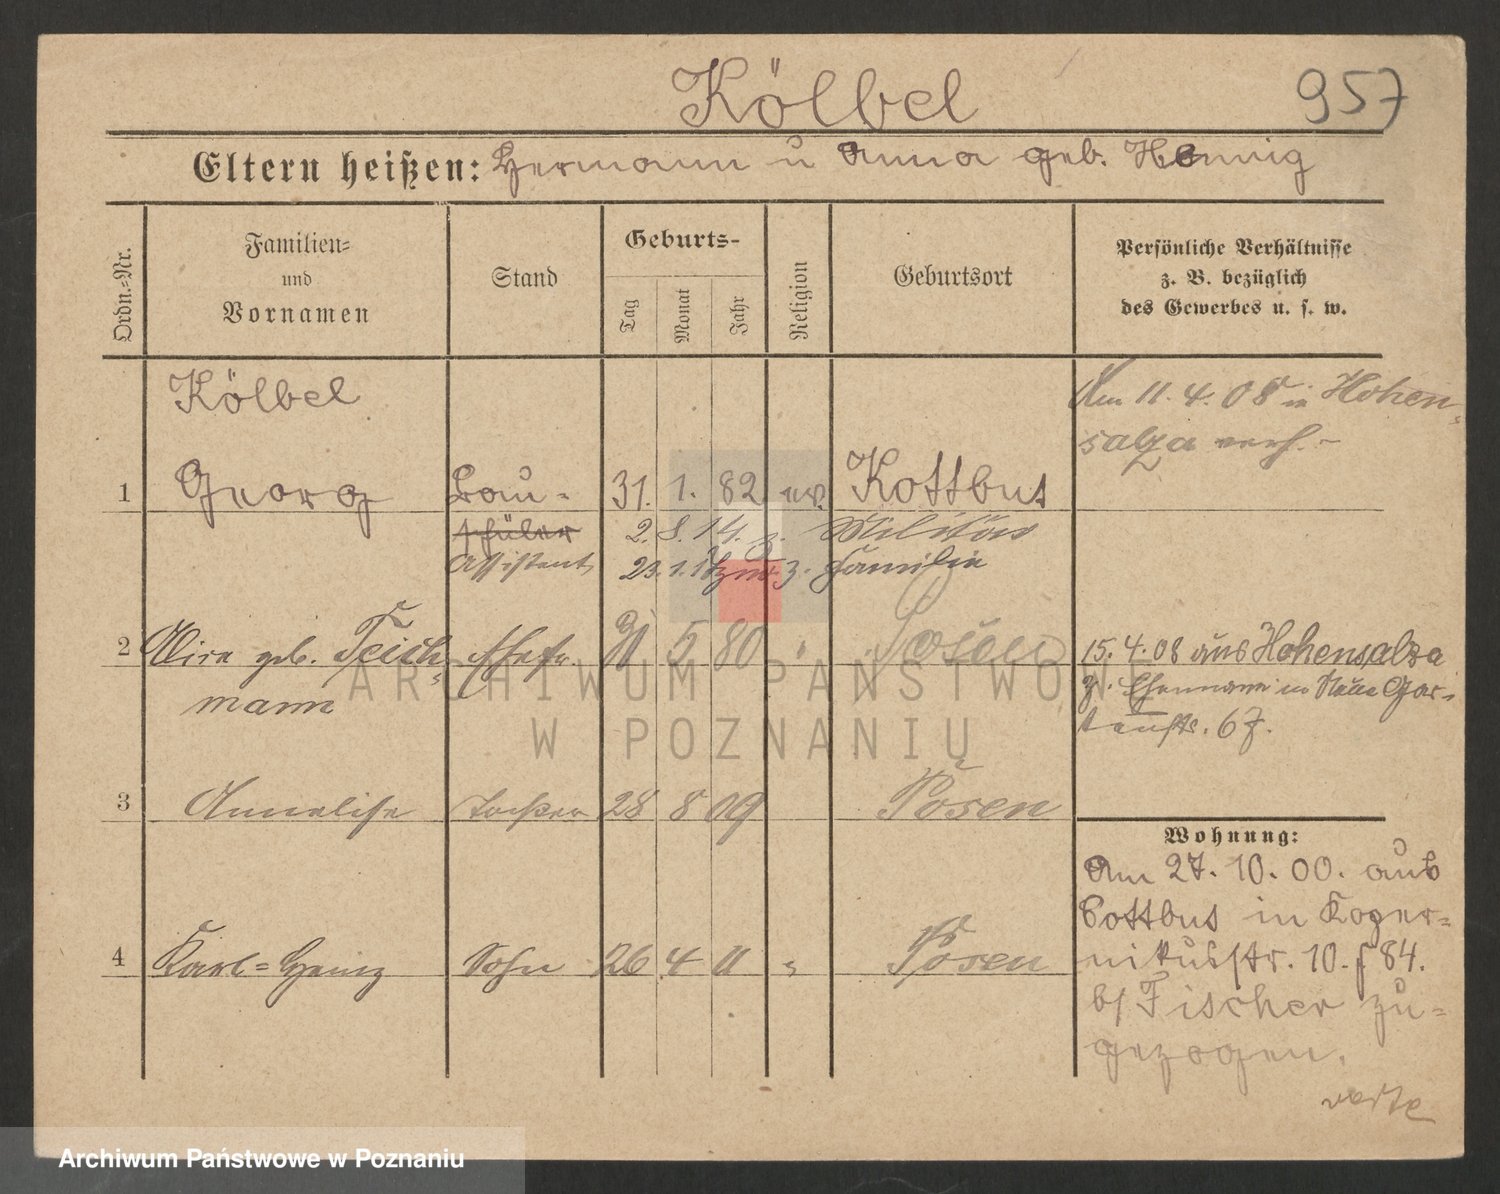 Kölbel
957
Eltern heißen: Hermann u Anna geb. Hennig
Ordn.=Nr.
Familien=
und
Vornamen
Stand
Geburts-
Tag
Monat
Jahr
Religion
Geburtsort
Persönliche Verhältnisse
z. B. bezüglich
des Gewerbes u. s. w.
Kölbel
Am 11.4.08 in Hohen=
salza verh.
1 Georg Bau- 31. 1. 82 ev. Kottbus
schüler 2. 8. 14. z. Militär
Assistent 23. 1. z. Familie
2 geb. Teich= Ehefr. 31 5 80 " Posen
mann
15.4.08 aus Hohensalza
z. Ehemann in Neue Gar-
tenstr. 67.
3 Annelise Tochter 28 8 09 Posen
Wohnung:
Am 27. 10. 00. aus
Cottbus in Koper=
nikusstr. 10. 84.
b/ Fischer zu=
gezogen.
4 Karl=Heinz Sohn 26 4 11 " Posen
verte
ARCHIWUM PAŃSTWOWE
W POZNANIU
Archiwum Państwowe w Poznaniu